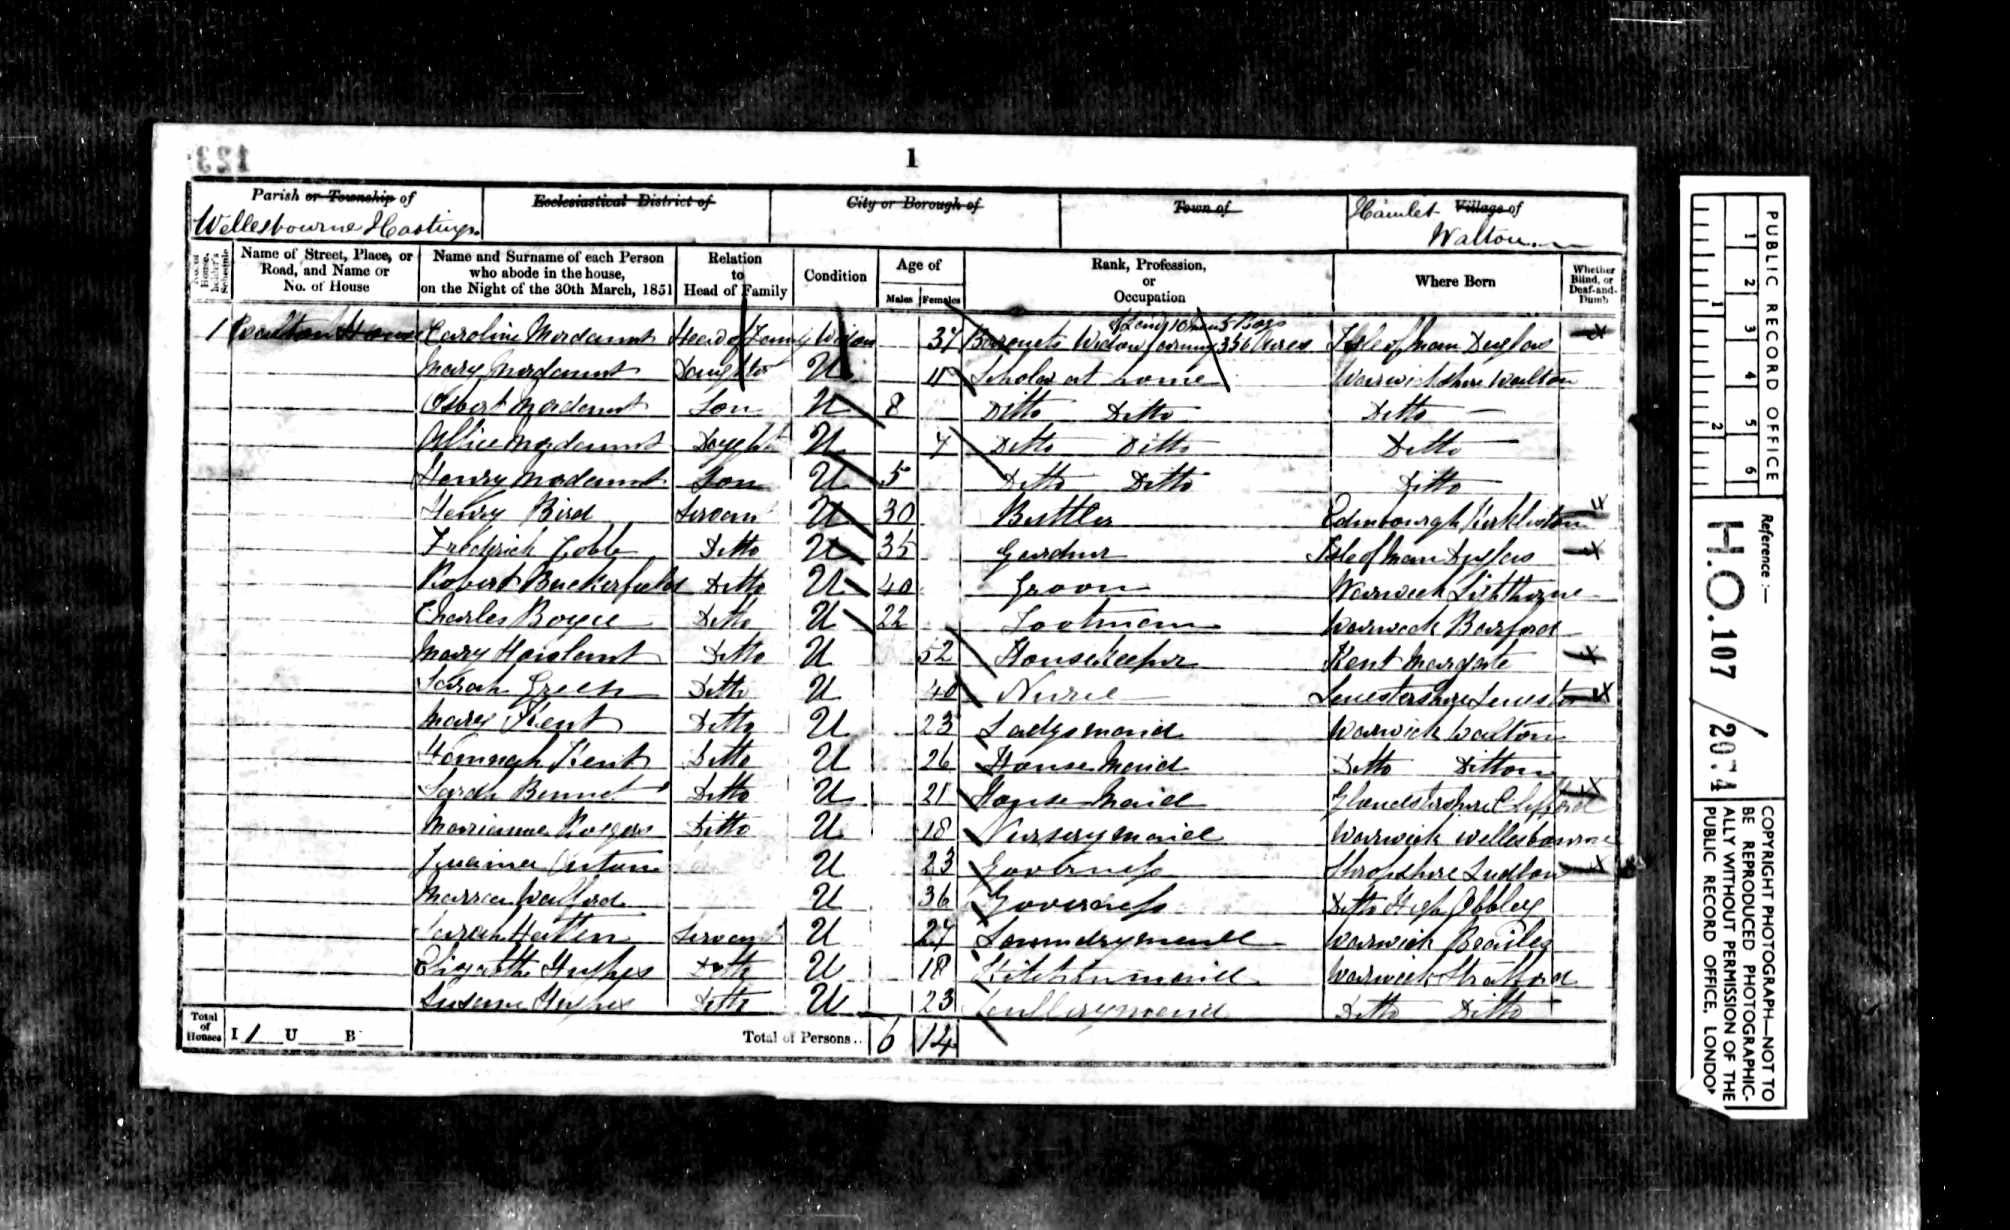 123
1
Parish or Township of
Ecclesiastical District of
City or Borough of
Town of
Hamlet Village of
Wellesbourne Hastings
Walton
No. of House-holder's Schedule
Name of Street, Place, or Road, and Name or No. of House
Name and Surname of each Person who abode in the house, on the Night of the 30th March, 1851
Relation to Head of Family
Condition
Age of
Males Females
Rank, Profession, or Occupation
Where Born
Whether Blind, or Deaf-and-Dumb
1 Walton House Caroline Mordaunt Head of Family Widow 37 Baronets Widow farming 356 Acres 10 men 5 Boys Isle of Man Douglas
Mary Mordaunt Daughter U 11 Scholar at home Warwickshire Walton
Osbert Mordaunt Son U 8 Ditto Ditto Ditto
Allice Mordaunt U 7 Ditto Ditto Ditto
Henry Mordaunt Son U 5 Ditto Ditto Ditto
Henry Bird Servant U 30 Buttler Kirkliston
Fredrick Ditto U 35 Isle of Man Douglas
Robert Buckerfield Ditto U 40 Groom Warwick Lighthorne
Charles Boyce Ditto U 22 Footman Warwick Barford
Mary Ditto U 52 Housekeeper Kent Margate
Sarah Green Ditto U 40 Nurse
Mary Kent Ditto U 23 Ladysmaid Warwick Walton
Hannah Kent Ditto U 26 House Maid Ditto Ditto
Sarah Bennet Ditto U 21 House Maid Clifford
Marianne Ditto U 18 Nurserymaid Warwick Wellesbourne
U 23 Governess Shropshire Ludlow
U 36 Governess Ditto High
Sarah Servant U 27 Laundrymaid Warwick
Hughes Ditto U 18 Kitchenmaid Warwick Stratford
Hughes Ditto U 23 Scullerymaid Ditto Ditto
Total of Houses I 1 U B Total of Persons.. 6 14
PUBLIC RECORD OFFICE
1 2 3 4 5 6
1 2
Reference :—
H.O. 107 / 2074
COPYRIGHT PHOTOGRAPH—NOT TO
BE REPRODUCED PHOTOGRAPHIC-
ALLY WITHOUT PERMISSION OF THE
PUBLIC RECORD OFFICE, LONDON